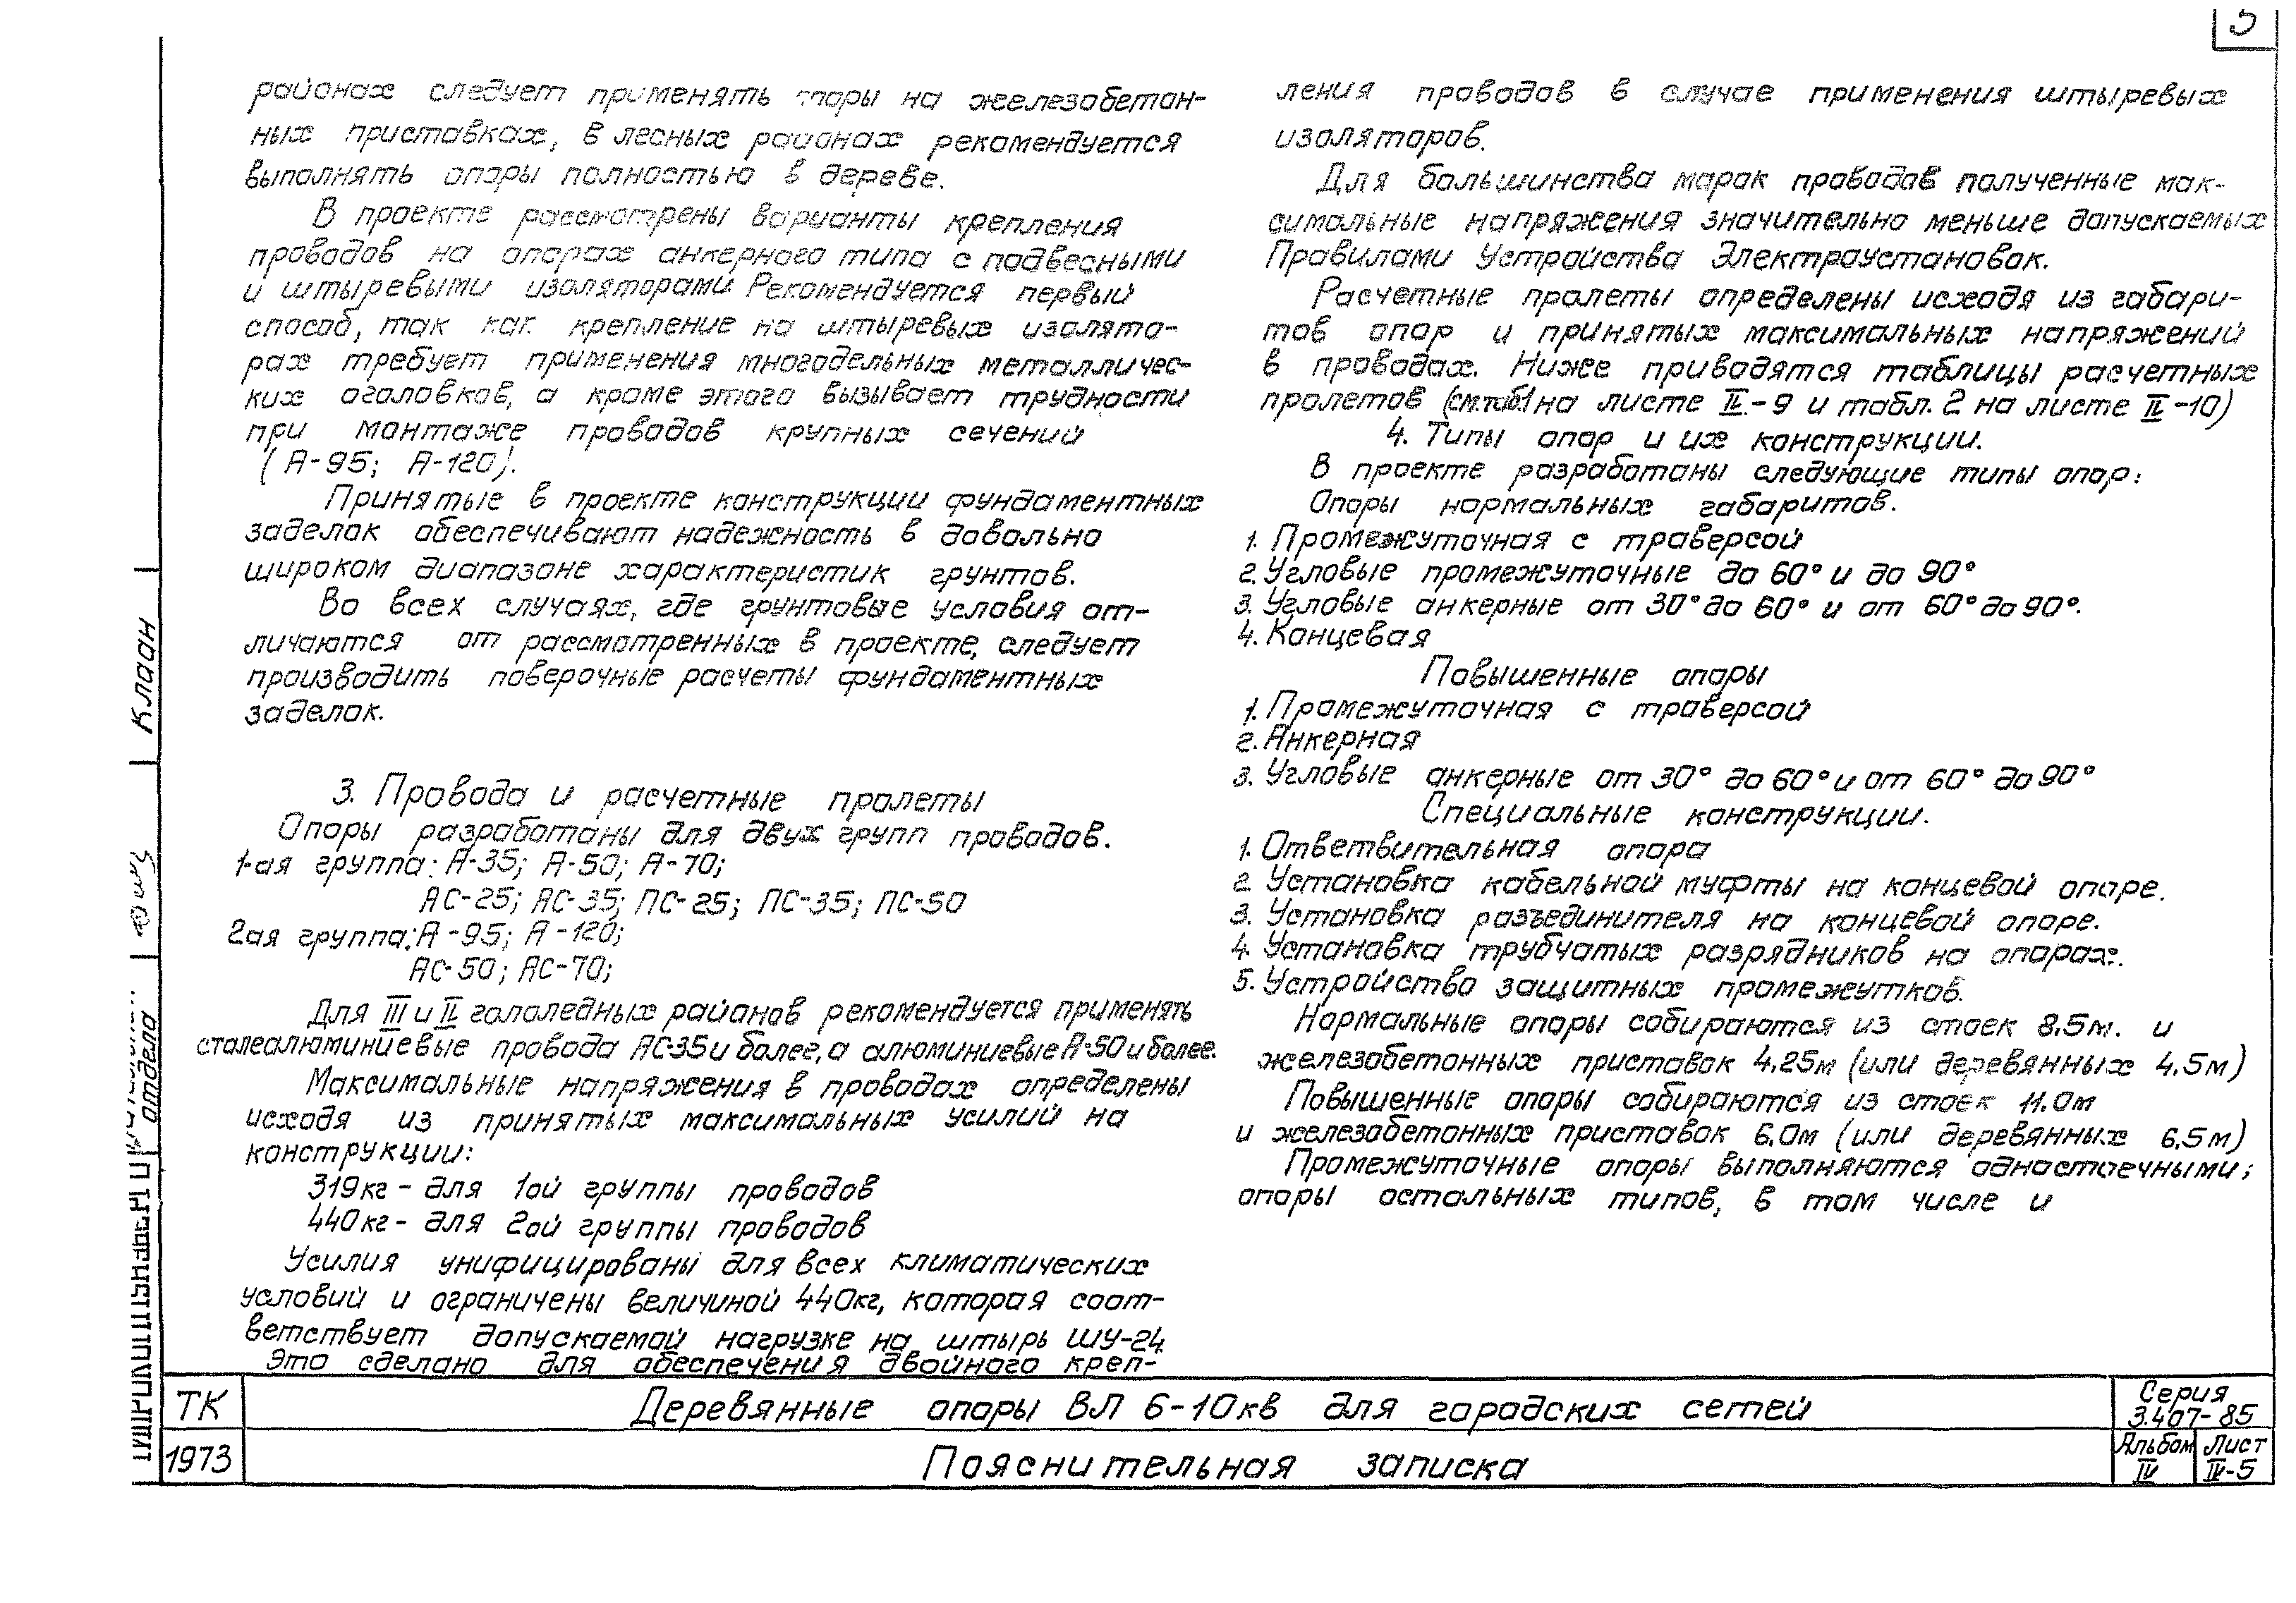 5
районах следует применять опоры на железобетон-
ных приставках, в лесных районах рекомендуется
выполнять опоры полностью в дереве.
В проекте рассмотрены варианты крепления
проводов на опорах анкерного типа с подвесными
и штыревыми изоляторами. Рекомендуется первый
способ, так как крепление на штыревых изолято-
рах требует применения многодельных металличес-
ких оголовков, а кроме этого вызывает трудности
при монтаже проводов крупных сечений
(А-95; А-120).
Принятые в проекте конструкции фундаментных
заделок обеспечивают надежность в довольно
широком диапазоне характеристик грунтов.
Во всех случаях, где грунтовые условия от-
личаются от рассмотренных в проекте, следует
производить поверочные расчеты фундаментных
заделок.
3. Провода и расчетные пролеты
Опоры разработаны для двух групп проводов.
1-ая группа: А-35; А-50; А-70;
АС-25; АС-35; ПС-25; ПС-35; ПС-50
2ая группа: А-95; А-120;
АС-50; АС-70;
Для III и IV гололедных районов рекомендуется применять
сталеалюминиевые провода АС-35 и более, а алюминиевые А-50 и более.
Максимальные напряжения в проводах определены
исходя из принятых максимальных усилий на
конструкции:
319кг - для 1ой группы проводов
440кг - для 2ой группы проводов
Усилия унифицированы для всех климатических
условий и ограничены величиной 440кг, которая соот-
ветствует допускаемой нагрузке на штырь ШУ-24
Это сделано для обеспечения двойного креп-
ления проводов в случае применения штыревых
изоляторов.
Для большинства марок проводов полученные мак-
симальные напряжения значительно меньше допускаемых
Правилами Устройства Электроустановок.
Расчетные пролеты определены исходя из габари-
тов опор и принятых максимальных напряжений
в проводах. Ниже приводятся таблицы расчетных
пролетов (см.таб.1 на листе IV-9 и табл. 2 на листе IV-10)
4. Типы опор и их конструкции.
В проекте разработаны следующие типы опор:
Опоры нормальных габаритов.
1. Промежуточная с траверсой
2. Угловые промежуточные до 60° и до 90°
3. Угловые анкерные от 30° до 60° и от 60° до 90°.
4. Концевая
Повышенные опоры
1. Промежуточная с траверсой
2. Анкерная
3. Угловые анкерные от 30° до 60° и от 60° до 90°
Специальные конструкции.
1. Ответвительная опора
2. Установка кабельной муфты на концевой опоре.
3. Установка разъединителя на концевой опоре.
4. Установка трубчатых разрядников на опорах.
5. Устройство защитных промежутков.
Нормальные опоры собираются из стоек 8.5м. и
железобетонных приставок 4.25м (или деревянных 4.5м)
Повышенные опоры собираются из стоек 11.0м
и железобетонных приставок 6.0м (или деревянных 6.5м)
Промежуточные опоры выполняются одностоечными;
опоры остальных типов, в том числе и
Клаан
отдела
ТК
1973
Деревянные опоры ВЛ 6-10кв для городских сетей
Пояснительная записка
Серия
3.407-85
Альбом Лист
IV IV-5